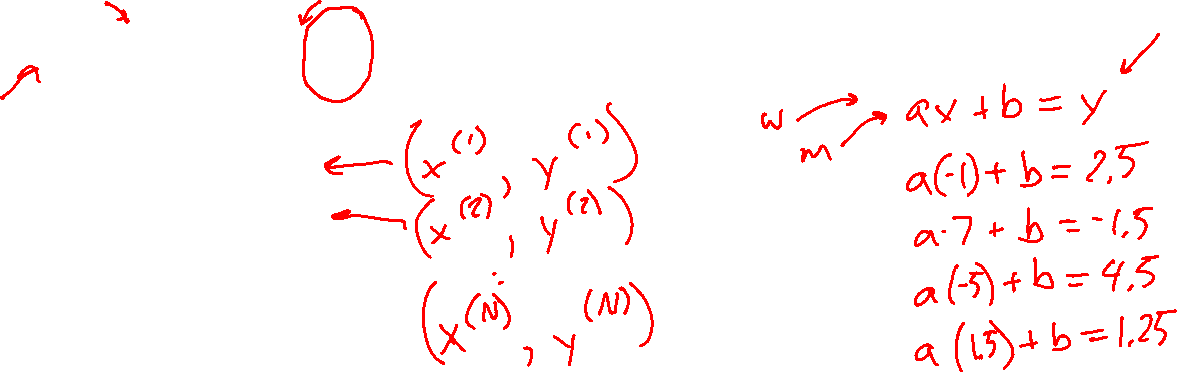 (x^(1), y^(1))
(x^(2), y^(2))
⋮
(x^(N), y^(N))
w
m
ax + b = y
a(-1) + b = 2,5
a·7 + b = -1,5
a(-5) + b = 4,5
a(1,5) + b = 1,25